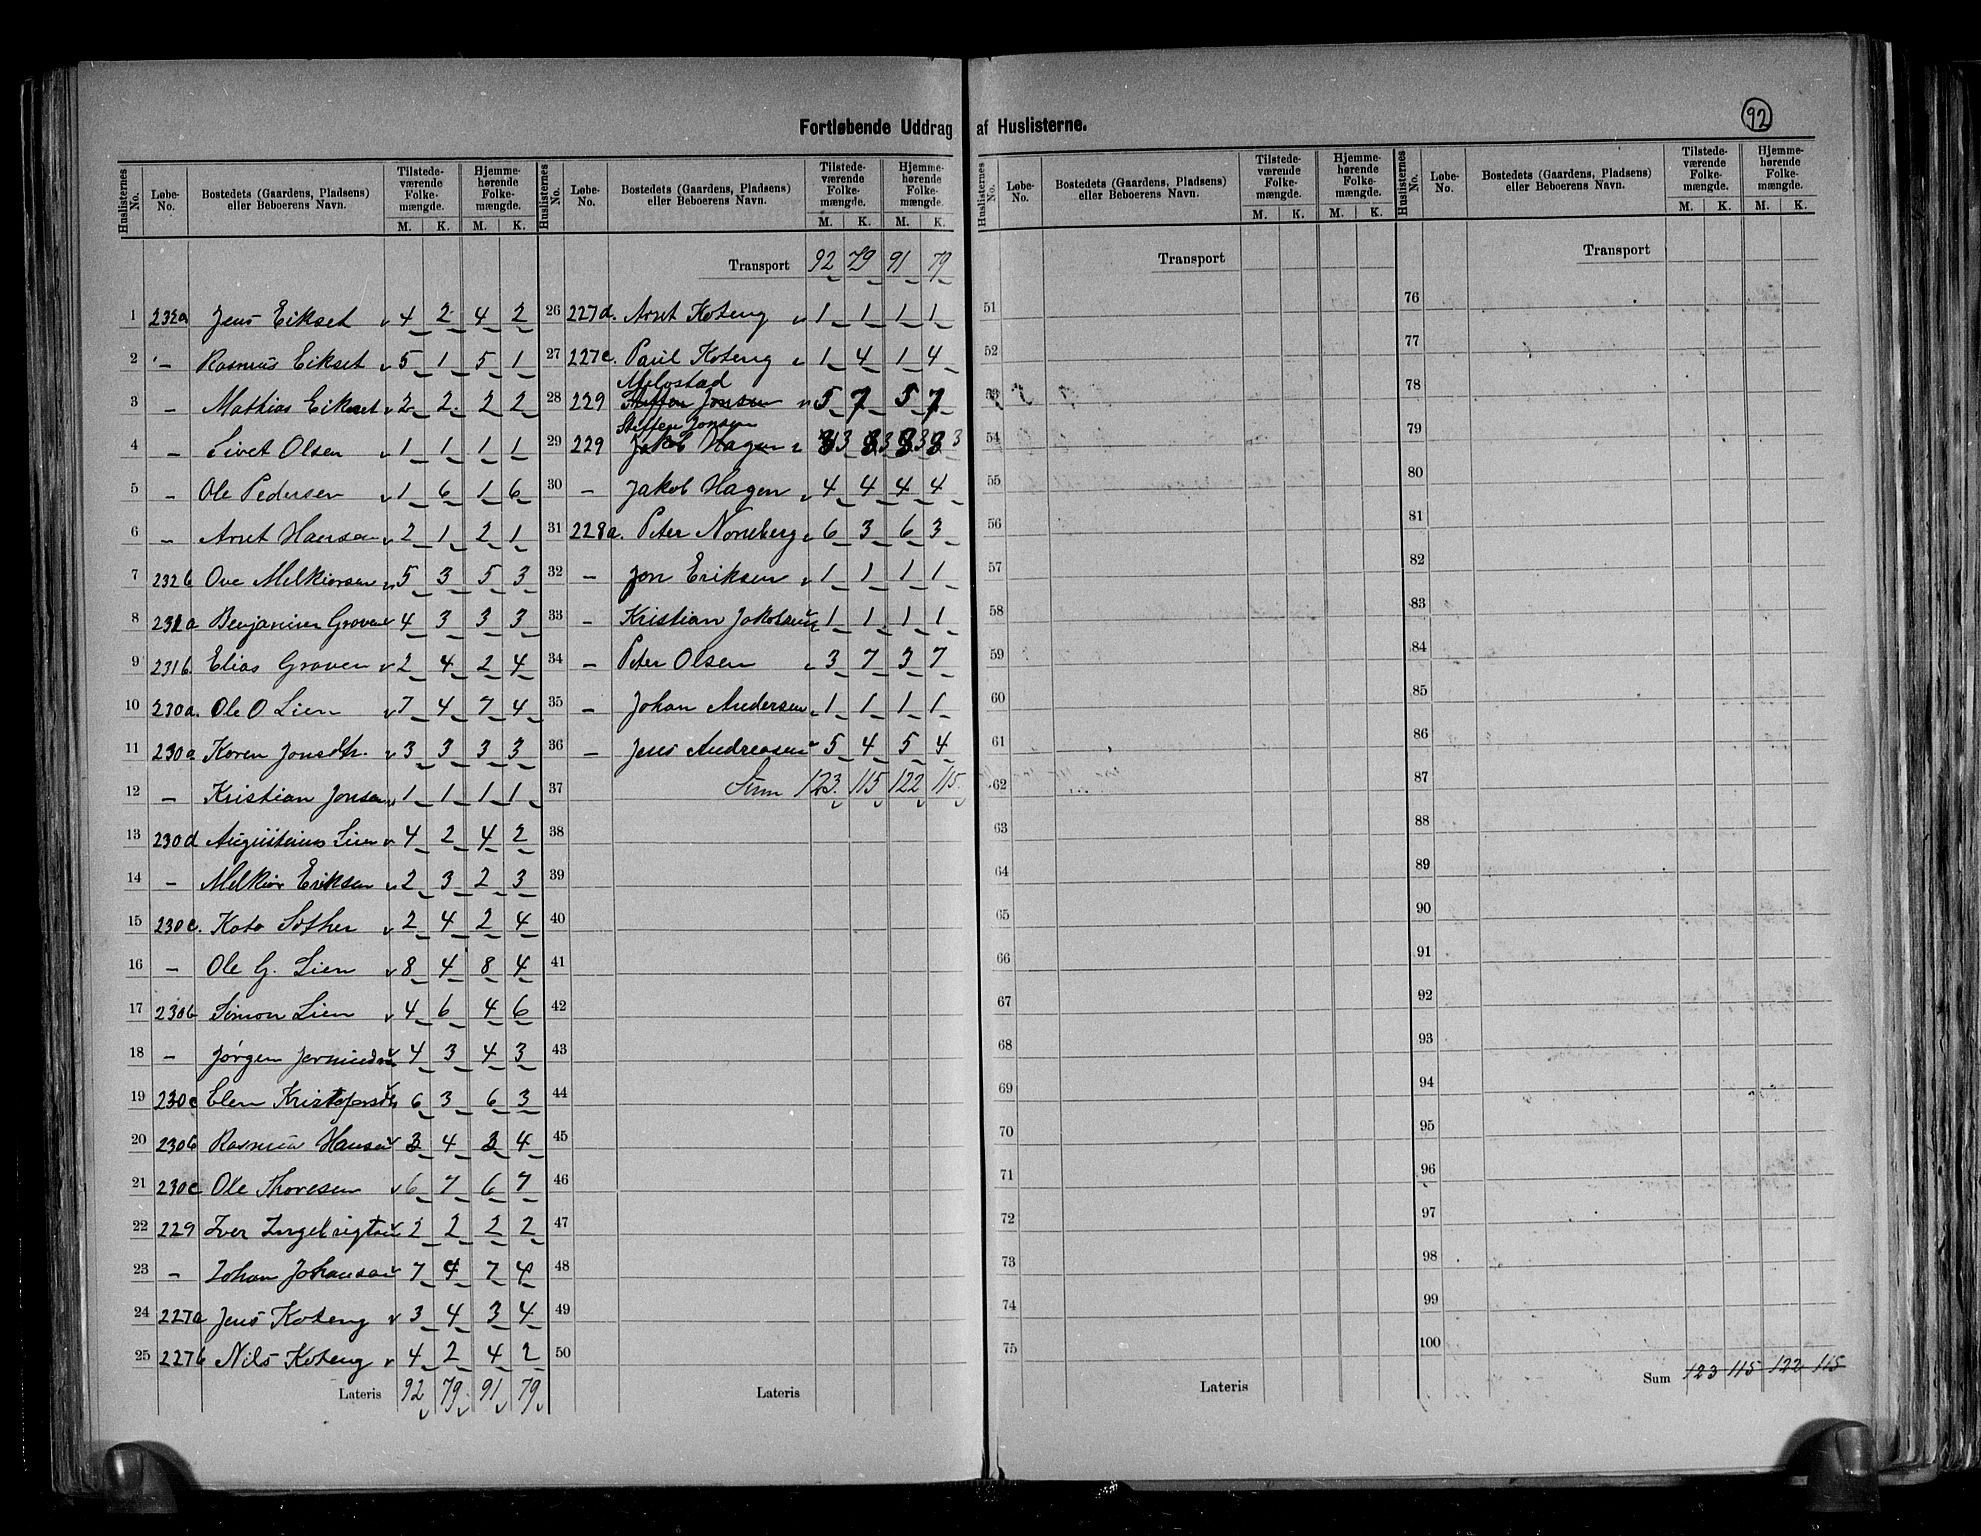 92
Fortløbende Uddrag af Huslisterne.
Huslisternes No. Løbe-No. Bostedets (Gaardens, Pladsens) eller Beboerens Navn. Tilstedeværende Folkemængde. M. K. Hjemmehørende Folkemængde. M. K.
1 232a Jens Eikset 4 2 4 2
2 — Rasmus Eikset 5 1 5 1
3 — Mathias Eikset 2 2 2 2
4 — Sivet Olsen 1 1 1 1
5 — Ole Pedersen 1 6 1 6
6 — Arnt Hansen 2 1 2 1
7 232b Ove Melkiorsen 5 3 5 3
8 231a Benjamin Groven 4 3 3 3
9 231b Elias Groven 2 4 2 4
10 230a. Ole O Lien 7 4 7 4
11 230a Karen Jonsdtr. 3 3 3 3
12 — Kristian Jonsen 1 1 1 1
13 230d Augustinus Lien 4 2 4 2
14 — Melkior Eriksen 2 3 2 3
15 230c. Kato Sother 2 4 2 4
16 — Ole G. Lien 8 4 8 4
17 230b Simon Lien 4 6 4 6
18 — Jørgen 4 3 4 3
19 230c Elen Kristofersd 6 3 6 3
20 230b Rasmus Hansen 3 4 3 4
21 230c Ole Thoresen 6 7 6 7
22 229 Iver Ingebrigtsen 2 2 2 2
23 — Johan Johansen 7 4 7 4
24 227a Jens Koteng 3 4 3 4
25 227b Nils Koteng 4 2 4 2
Lateris 92 79 91 79
Huslisternes No. Løbe-No. Bostedets (Gaardens, Pladsens) eller Beboerens Navn. Tilstedeværende Folkemængde. M. K. Hjemmehørende Folkemængde. M. K.
Transport 92 79 91 79
26 227d. Arnt Koteng 1 1 1 1
27 227c. Paul Koteng 1 4 1 4
Melostad
28 229 Steffen Jonsen 5 7 5 7
Steffen Jonsen
29 229 Jakob Hagen 3 3 3 3
30 — Jakob Hagen 4 4 4 4
31 228a. Peter Norreberg 6 3 6 3
32 — Jon Eriksen 1 1 1 1
33 — Kristian Jakobsen 1 1 1 1
34 — Peter Olsen 3 7 3 7
35 — Johan Andersen 1 1 1 1
36 — Jens Andreasen 5 4 5 4
37 Sum 123 115 122 115
38
39
40
41
42
43
44
45
46
47
48
49
50
Lateris
Huslisternes No. Løbe-No. Bostedets (Gaardens, Pladsens) eller Beboerens Navn. Tilstedeværende Folkemængde. M. K. Hjemmehørende Folkemængde. M. K.
Transport
51
52
53
54
55
56
57
58
59
60
61
62
63
64
65
66
67
68
69
70
71
72
73
74
75
Lateris
Huslisternes No. Løbe-No. Bostedets (Gaardens, Pladsens) eller Beboerens Navn. Tilstedeværende Folkemængde. M. K. Hjemmehørende Folkemængde. M. K.
Transport
76
77
78
79
80
81
82
83
84
85
86
87
88
89
90
91
92
93
94
95
96
97
98
99
100
Sum 123 115 122 115